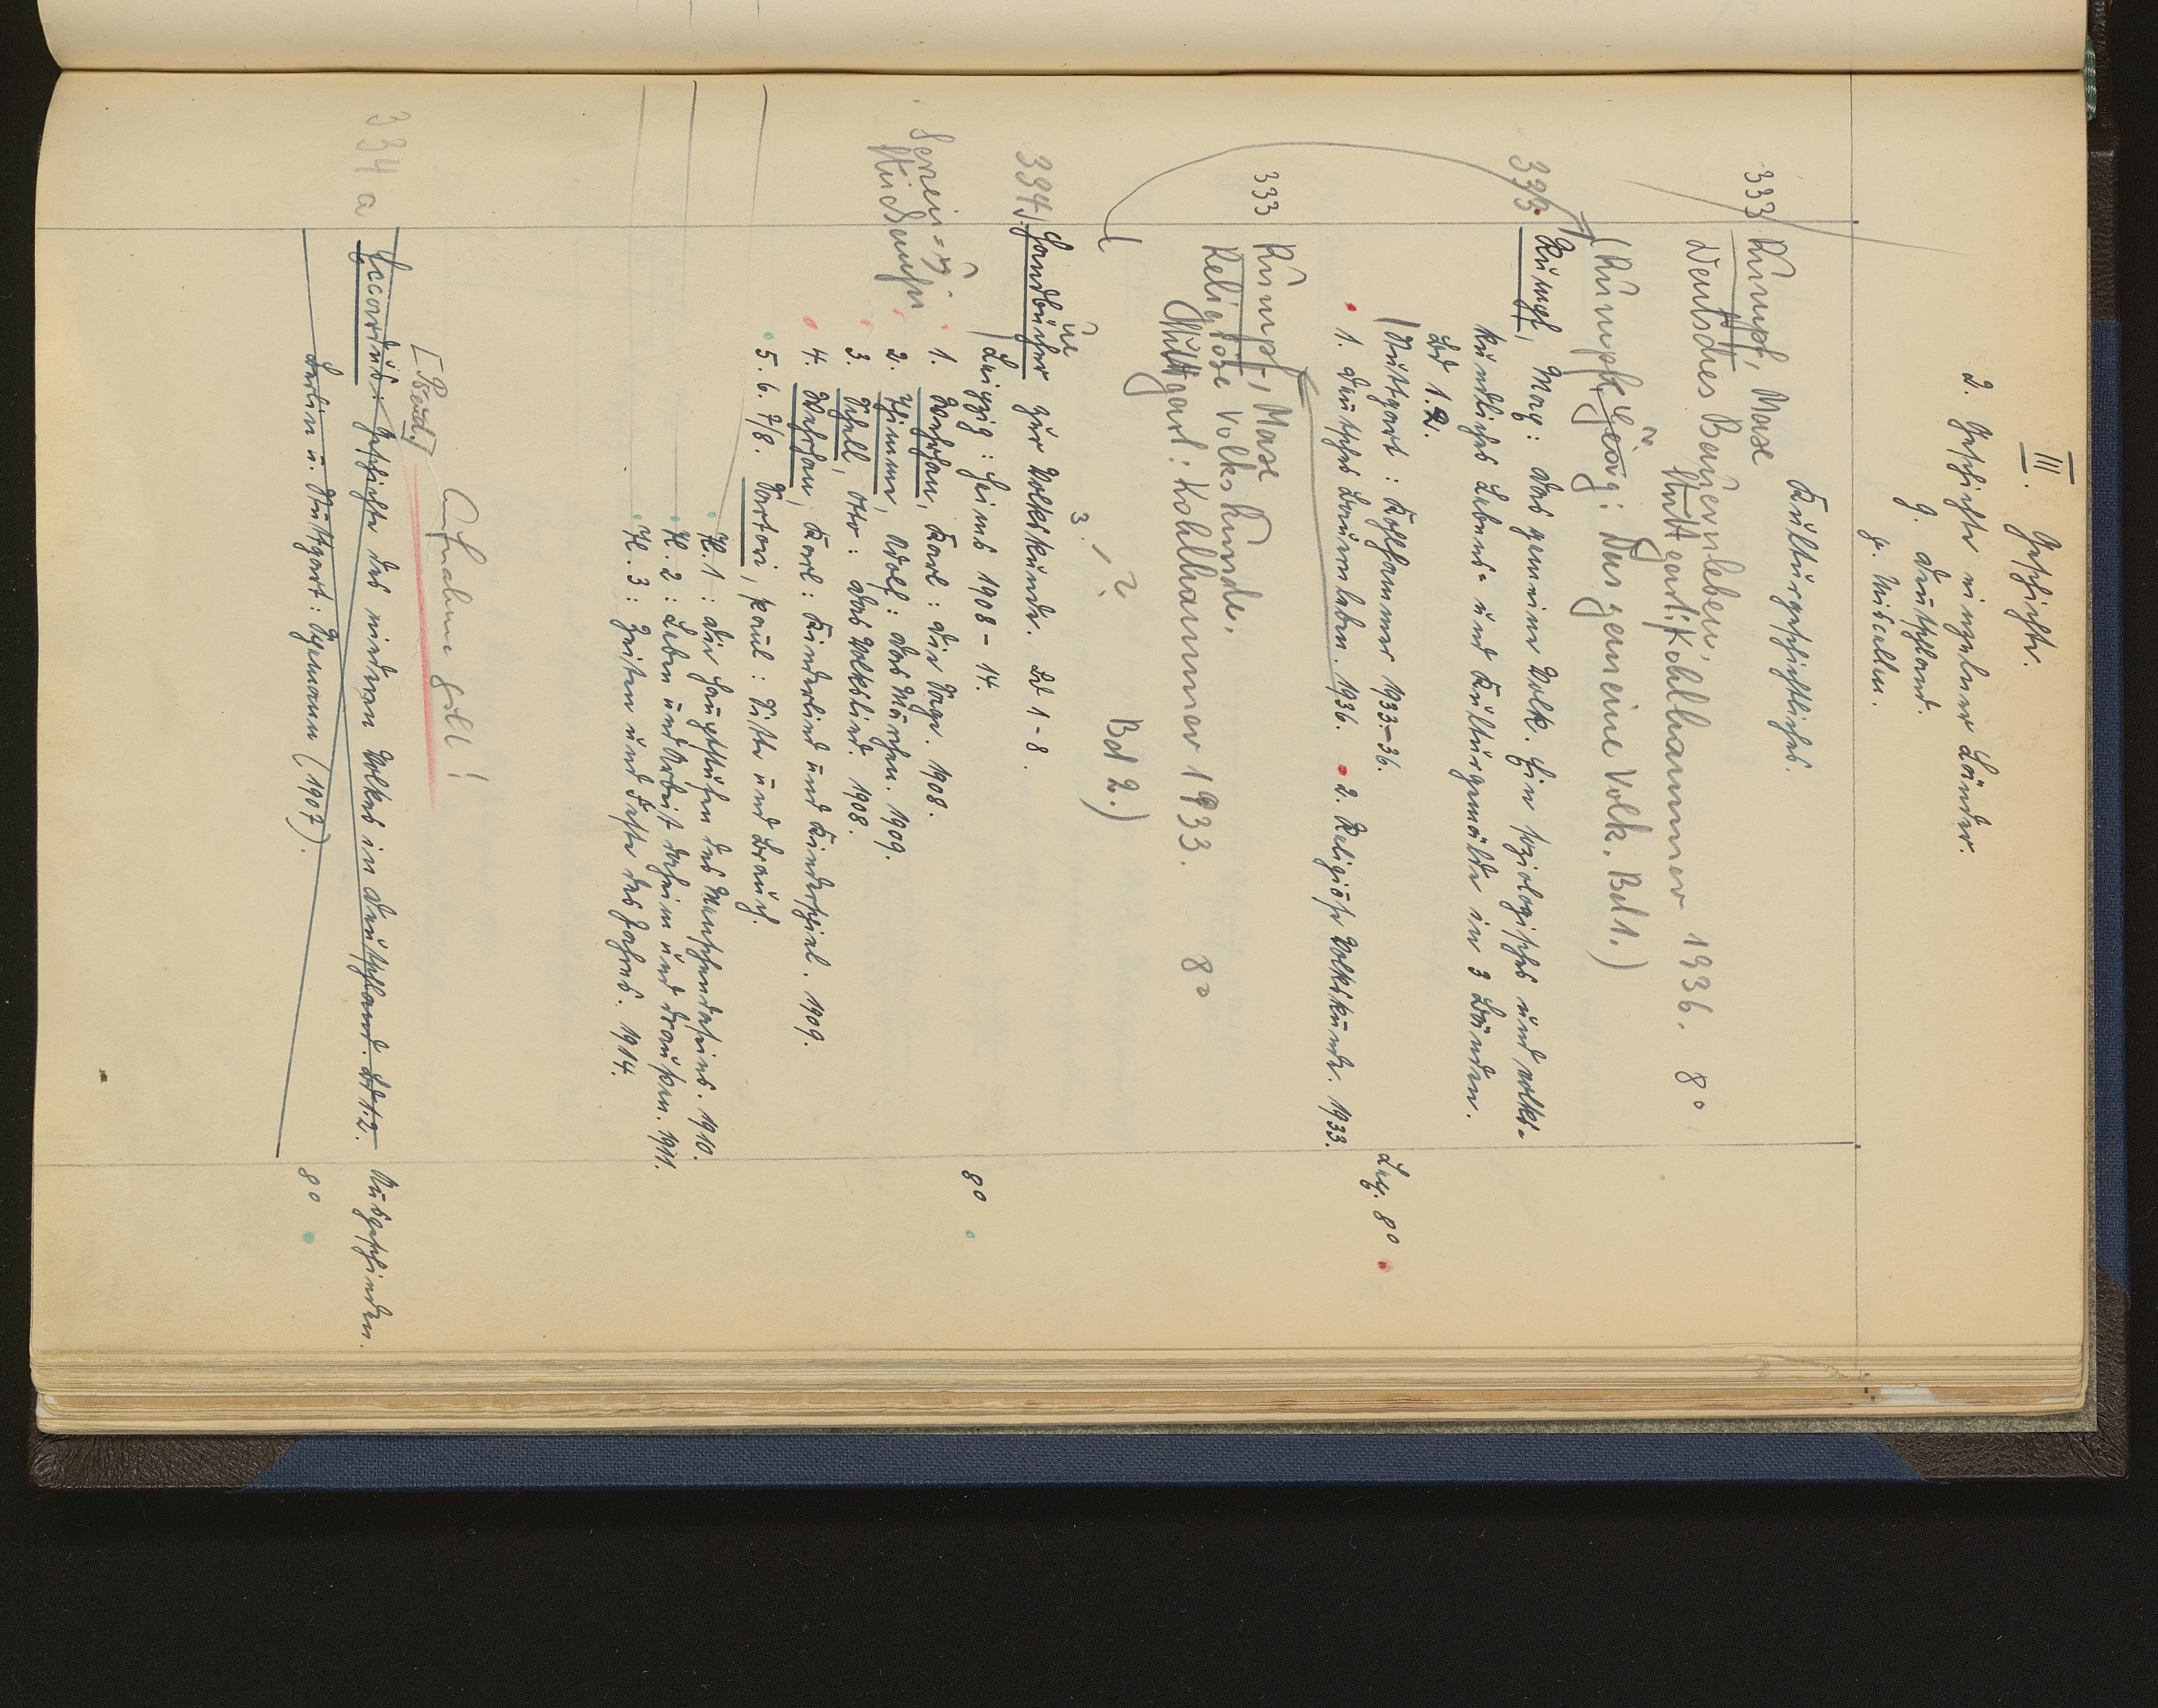 III. Geschichte.
2. Geschichte einzelner Länder.
g. Deutschland.
y. Miscellen.
Kulturgeschichtliches.
333 Rumpf, Maxe
Deutsches Bauernleben.
Stuttgart: Kohlhammer 1936. 8°
(Rumpf, Georg: Das gemeine Volk. Bd 1.)
333. Rumpf, Max: Das gemeine Volk. Ein soziologisches und volks-
kundliches Lebens- und Kulturgemälde in 3 Bänden.
Bd 1.2.
(Stuttgart: Kohlhammer 1933-36. Lex. 8°
1. Deutsches Bauernleben. 1936. 2. Religiöse Volkskunde. 1933.
333 Rumpf, Maxe
Religiöse Volkskunde.
Stuttgart: Kohlhammer 1933. 8°
Bd 2.)
3. ?
334. Handbücher zur Volkskunde. Bd 1-8.
Leipzig: Heims 1908-14. 8°
1. Wehrhan, Karl: Die Sage. 1908.
2. Thimme, Adolf: Das Märchen. 1909.
3. Schell, Otto: Das Volkslied. 1908.
4. Wehrhan, Karl: Kinderlied und Kinderspiel. 1909.
5. 6. 7/8. Sartori, Paul: Sitte und Brauch.
Tl. 1: Die Hauptstufen des Menschendaseins. 1910.
Tl. 2: Leben und Arbeit daheim und draußen. 1911.
Tl. 3: Zeiten und Feste des Jahres. 1914.
Aufnahme gilt!
334a Eccardus: Geschichte des niederen Volkes in Deutschland. Bd 1.2. Ausgeschieden.
Berlin u. Stuttgart: Spemann (1907). 8°